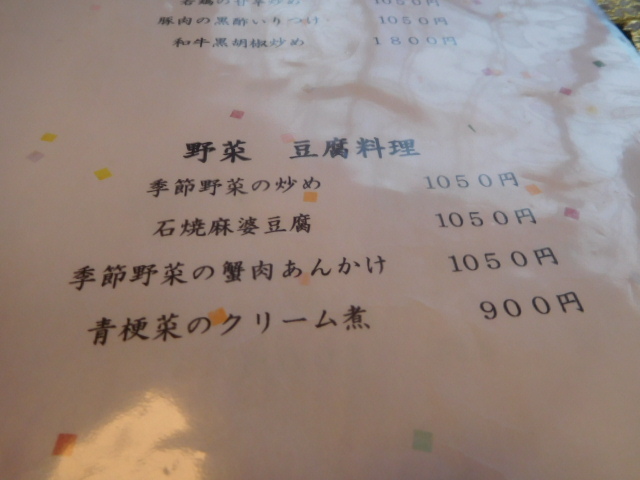 若鶏の甘辛炒め １０５０円
豚肉の黒酢いりつけ １０５０円
和牛黒胡椒炒め １８００円
野菜 豆腐料理
季節野菜の炒め １０５０円
石焼麻婆豆腐 １０５０円
季節野菜の蟹肉あんかけ １０５０円
青梗菜のクリーム煮 ９００円